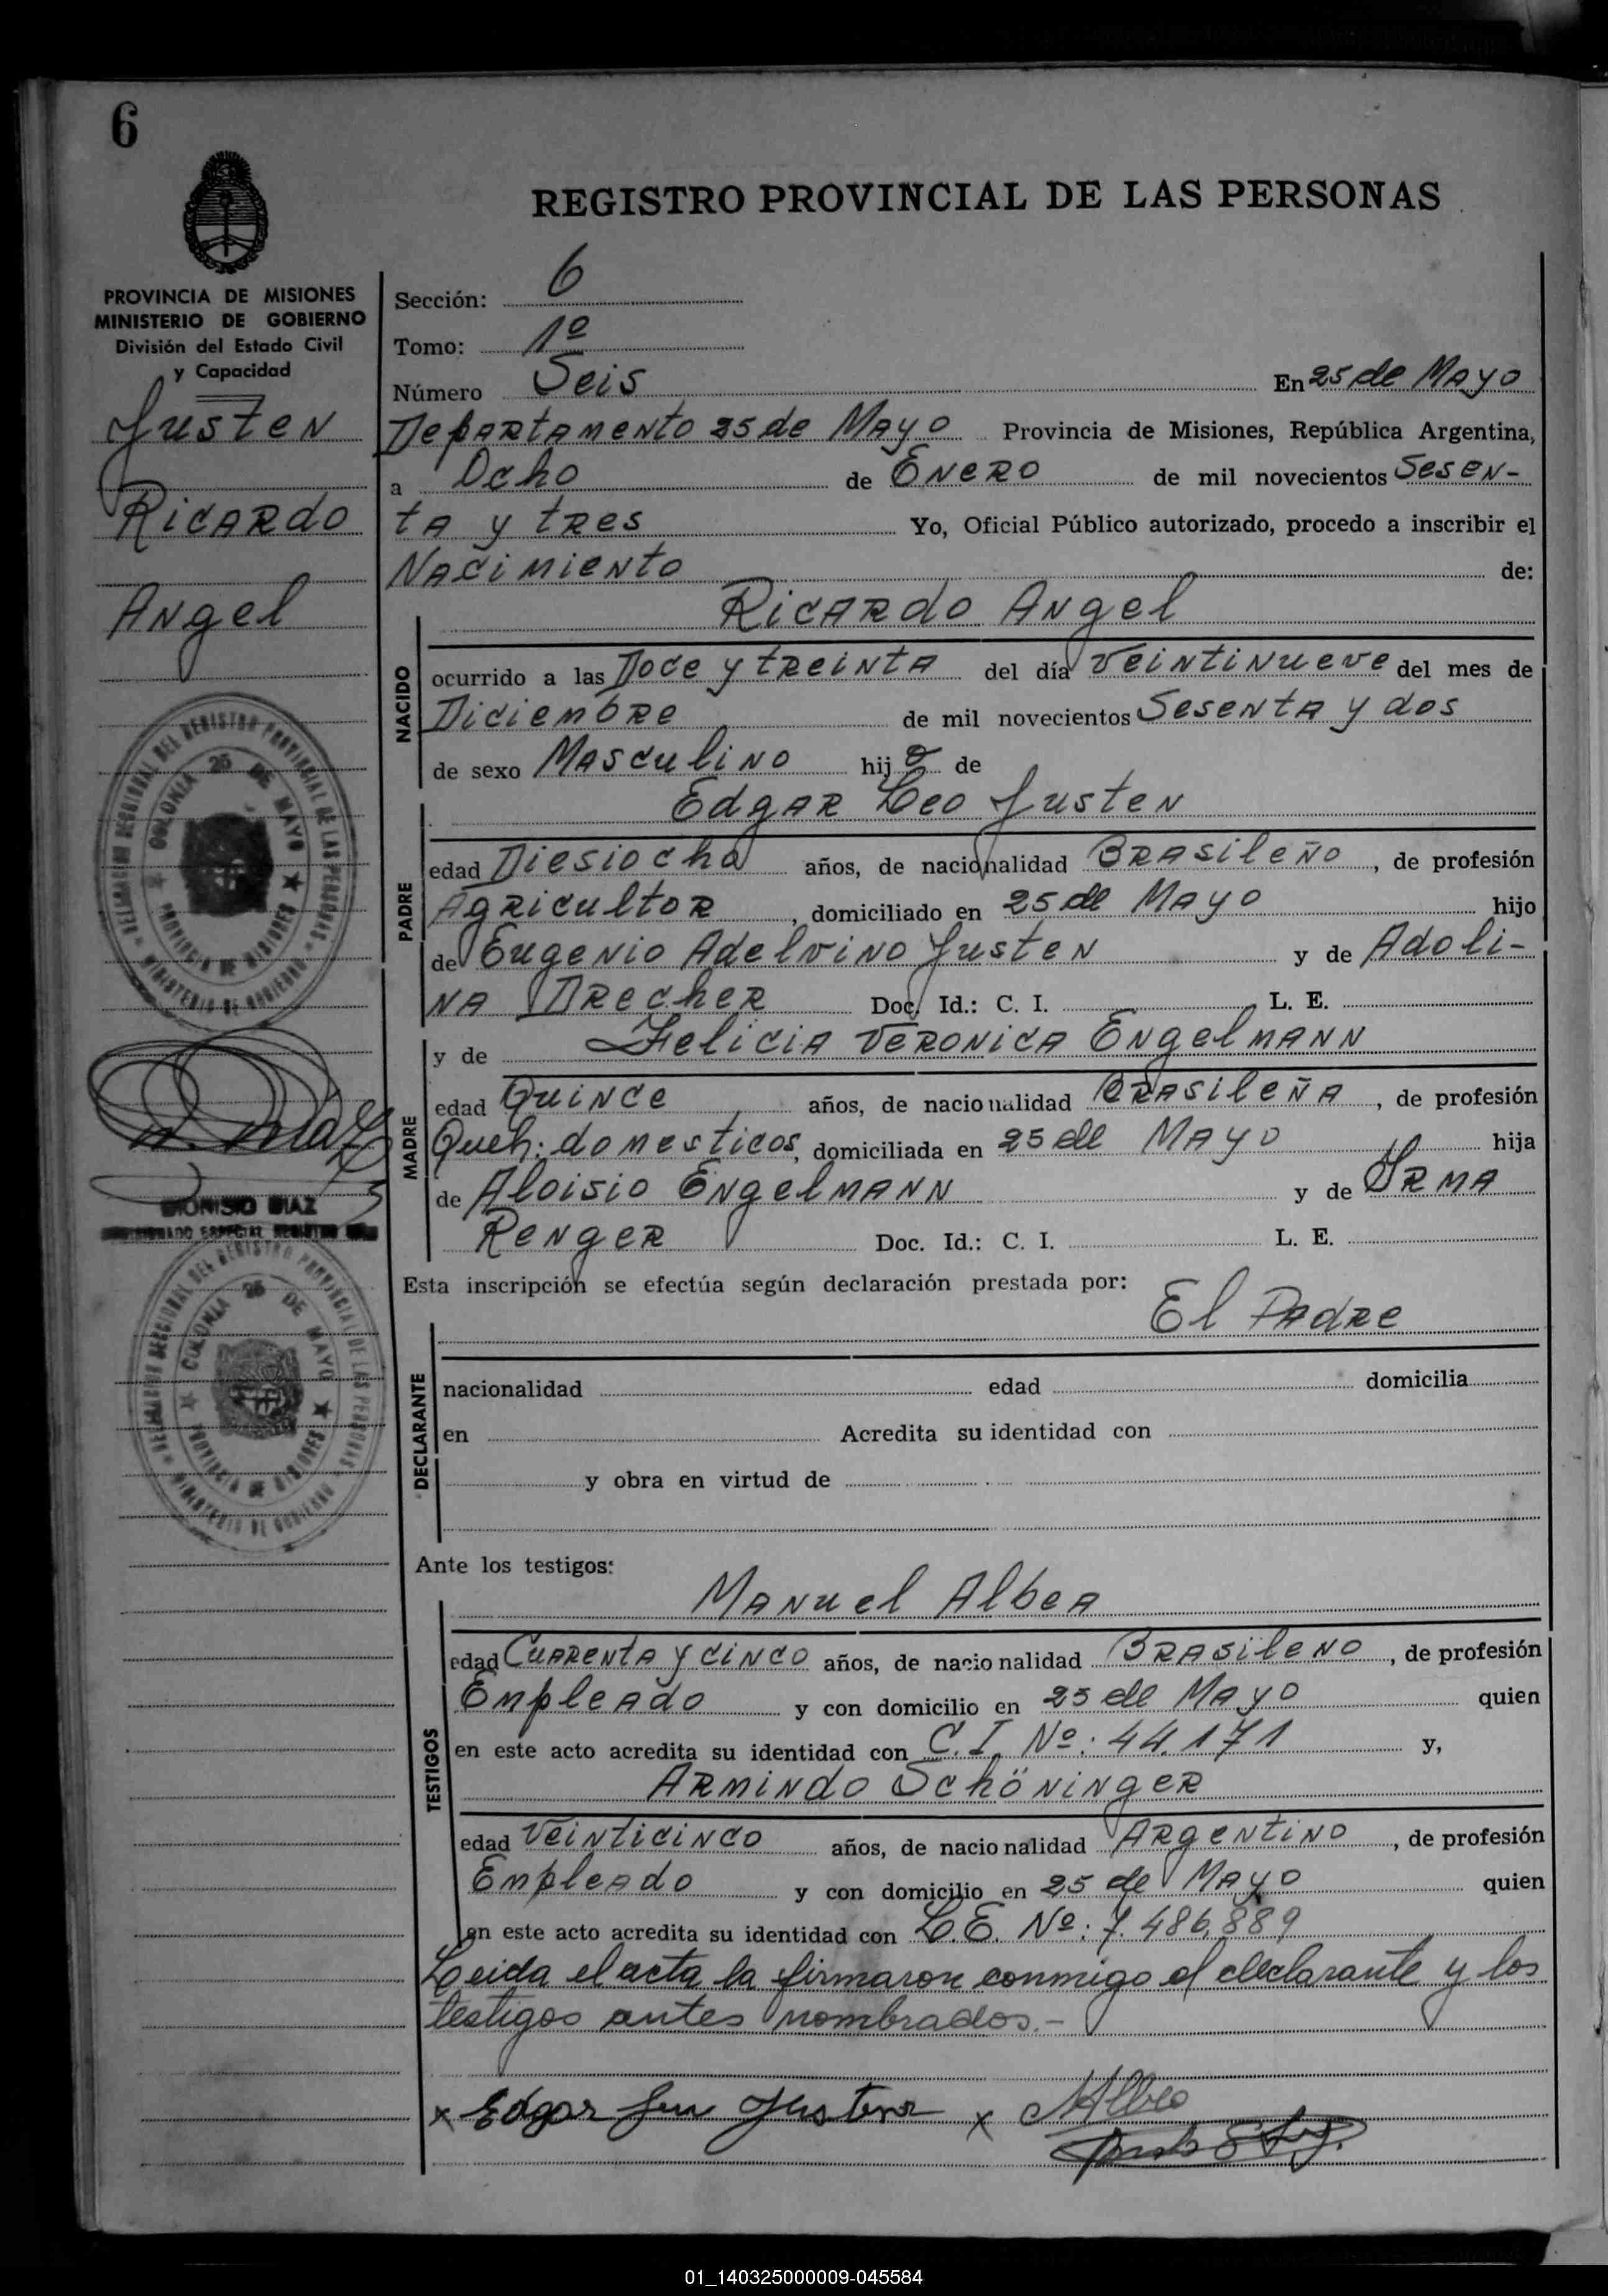 6
REGISTRO PROVINCIAL DE LAS PERSONAS
PROVINCIA DE MISIONES
MINISTERIO DE GOBIERNO
División del Estado Civil
y Capacidad
Justen
Ricardo
Angel
DELEGACION REGIONAL DEL REGISTRO PROVINCIAL DE LAS PERSONAS
COLONIA 25 DE MAYO
PROVINCIA DE MISIONES
MINISTERIO DE GOBIERNO
D. Diaz
DIONISIO DIAZ
DELEGACION REGIONAL DEL REGISTRO PROVINCIAL DE LAS PERSONAS
COLONIA 25 DE MAYO
PROVINCIA DE MISIONES
MINISTERIO DE GOBIERNO
Sección: 6
Tomo: 1º
Número Seis En 25 de Mayo
Departamento 25 de Mayo Provincia de Misiones, República Argentina,
a Ocho de Enero de mil novecientos Sesen-
ta y tres Yo, Oficial Público autorizado, procedo a inscribir el
Nacimiento de:
Ricardo Angel
NACIDO
ocurrido a las Doce y treinta del día Veintinueve del mes de
Diciembre de mil novecientos Sesenta y dos
de sexo Masculino hijo de
Edgar Leo Justen
PADRE
edad Diesiocho años, de nacionalidad Brasileño, de profesión
Agricultor, domiciliado en 25 de Mayo hijo
de Eugenio Adelvino Justen y de Adoli-
na Drecher Doc. Id.: C. I. L. E.
y de Felicia Veronica Engelmann
MADRE
edad Quince años, de nacionalidad Brasileña, de profesión
Queh: domesticos, domiciliada en 25 de Mayo hija
de Aloisio Engelmann y de Irma
Renger Doc. Id.: C. I. L. E.
Esta inscripción se efectúa según declaración prestada por:
El Padre
DECLARANTE
nacionalidad edad domicilia
en Acredita su identidad con
y obra en virtud de
Ante los testigos:
Manuel Albea
TESTIGOS
edad Cuarenta y cinco años, de nacionalidad Brasileno, de profesión
Empleado y con domicilio en 25 de Mayo quien
en este acto acredita su identidad con C. I. Nº: 44.171 y,
Armindo Schöninger
edad Veinticinco años, de nacionalidad Argentino, de profesión
Empleado y con domicilio en 25 de Mayo quien
en este acto acredita su identidad con L. E. Nº: 7.486.889
Leida el acta la firmaron conmigo el declarante y los
testigos antes nombrados.-
x Edgar Leu Justen x MAlbea
01_140325000009-045584